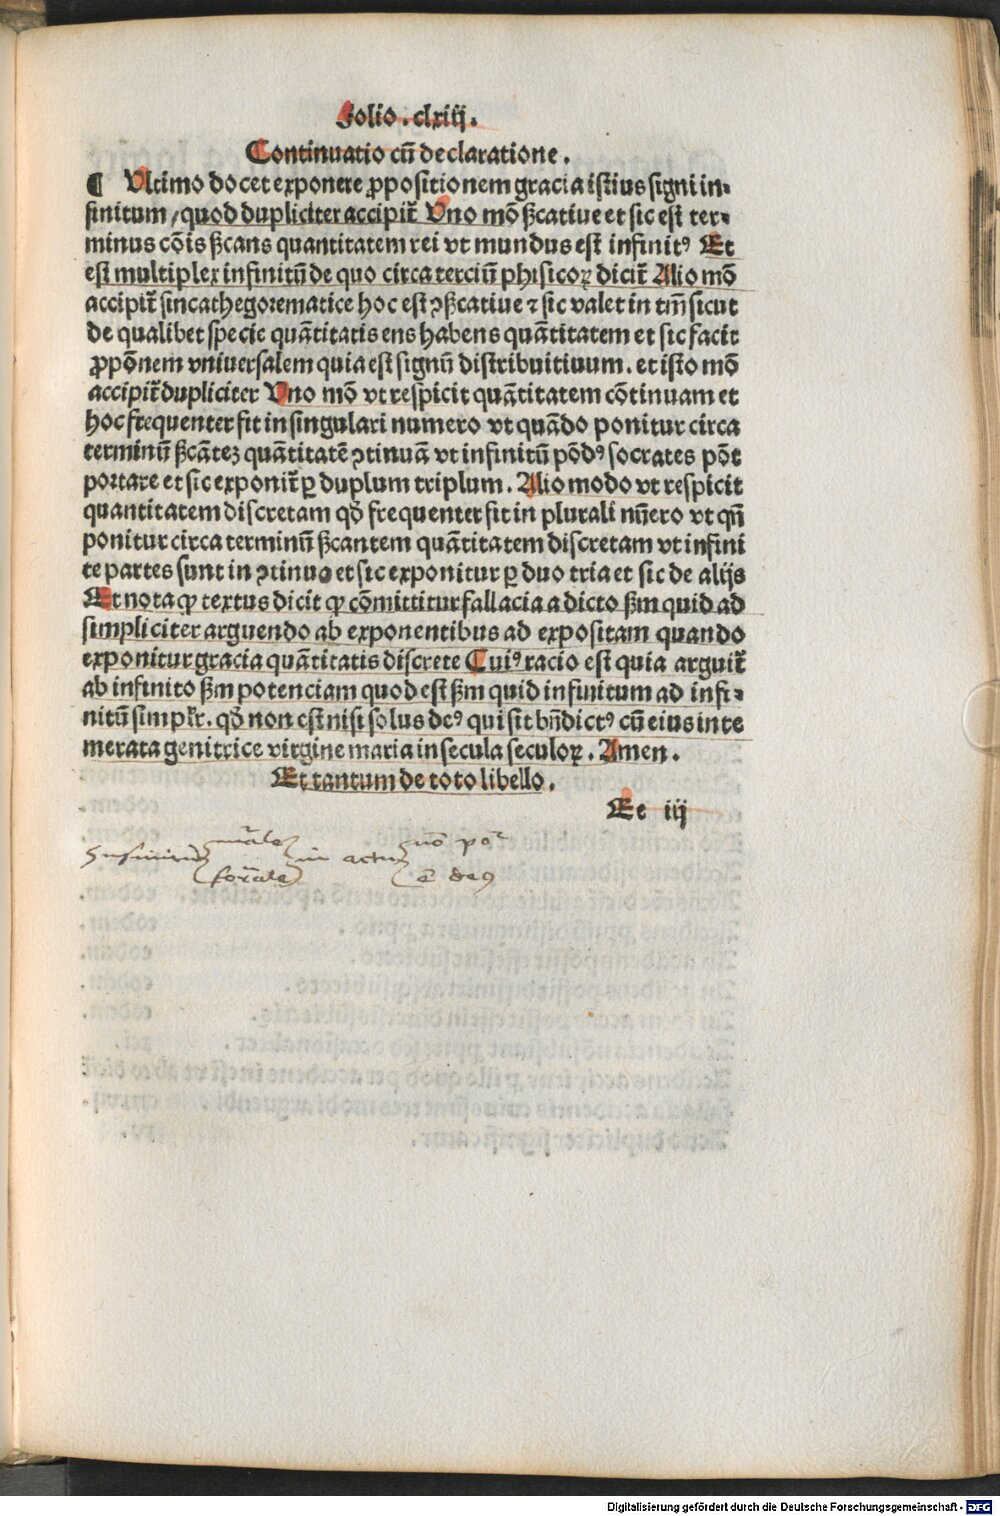 Folio. clxiij.
Continuatio cū declaratione.
¶ Vltimo docet exponere ꝓpositionem gracia istius signi in-
finitum / quod dupliciter accipit̄ Vno mō ßcatiue et sic est ter-
minus cōis ßcans quantitatem rei vt mundus est infinitꝰ Et
est multiplex infinitū de quo circa terciū phisicoꝝ dicit̄ Alio mō
accipit̄ sincathegorematice hoc est ꝯßcatiue ⁊ sic valet in tm̄ sicut
de qualibet specie quātitatis ens habens quātitatem et sic facit
ꝓpōnem vniuersalem quia est signū distribuitiuum. et isto mō
accipit̄ dupliciter Vno mō vt respicit quātitatem cōtinuam et
hoc frequenter fit in singulari numero vt quādo ponitur circa
terminū ßcātez quātitatē ꝯtinuā vt infinitū pōdꝰ socrates pōt
portare et sic exponit̄ ꝑ duplum triplum. Alio modo vt respicit
quantitatem discretam qd̄ frequenter sit in plurali nūero vt qn̄
ponitur circa terminū ßcantem quātitatem discretam vt infini
te partes sunt in ꝯtinuo et sic exponitur ꝑ duo tria et sic de alijs
Et nota ꝙ textus dicit ꝙ cōmittitur fallacia a dicto ßm quid ad
simpliciter arguendo ab exponentibus ad expositam quando
exponitur gracia quātitatis discrete Cuiꝰ racio est quia arguit̄
ab infinito ßm potenciam quod est ßm quid infinitum ad infi-
nitū simpłr. qd̄ non est nisi solus deꝰ qui sit bn̄dictꝰ cū eius inte
merata genitrice virgine maria in secula seculoꝝ. Amen.
Et tantum de toto libello.
Ee iij
in actu
Digitalisierung gefördert durch die Deutsche Forschungsgemeinschaft - DFG